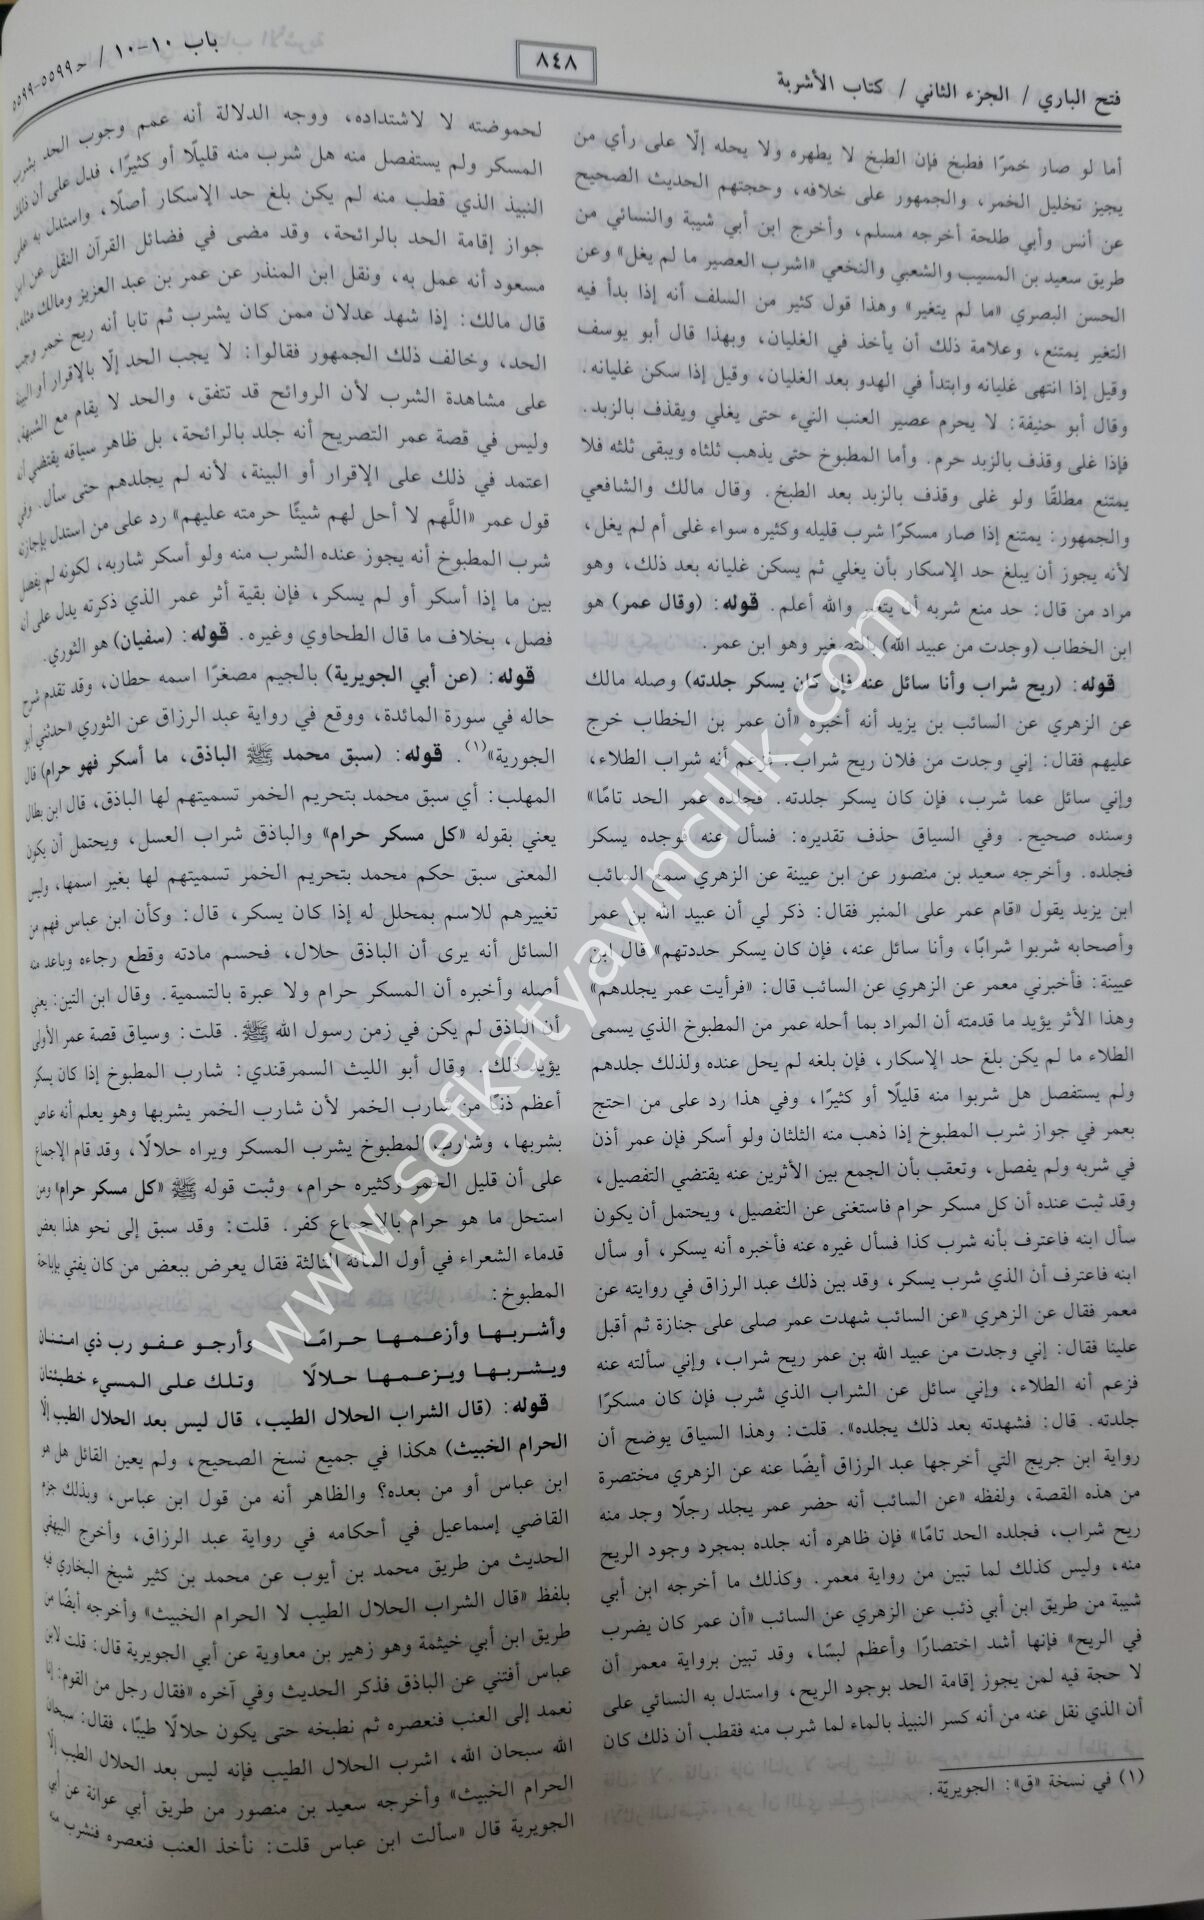 فتح الباري / الجزء الثاني / كتاب الأشربة
٨٤٨
باب ١٠-١٠ / ح ٥٥٩٩-٥٥٩٩
أما لو صار خمرًا فطبخ فإن الطبخ لا يطهره ولا يحله إلّا على رأي من
يجيز تخليل الخمر، والجمهور على خلافه، وحجتهم الحديث الصحيح
عن أنس وأبي طلحة أخرجه مسلم، وأخرج ابن أبي شيبة والنسائي من
طريق سعيد بن المسيب والشعبي والنخعي «اشرب العصير ما لم يغل» وعن
الحسن البصري «ما لم يتغير» وهذا قول كثير من السلف أنه إذا بدأ فيه
التغير يمتنع، وعلامة ذلك أن يأخذ في الغليان، وبهذا قال أبو يوسف
وقيل إذا انتهى غليانه وابتدأ في الهدو بعد الغليان، وقيل إذا سكن غليانه.
وقال أبو حنيفة: لا يحرم عصير العنب النيء حتى يغلي ويقذف بالزبد.
فإذا غلى وقذف بالزبد حرم. وأما المطبوخ حتى يذهب ثلثاه ويبقى ثلثه فلا
يمتنع مطلقًا ولو غلى وقذف بالزبد بعد الطبخ. وقال مالك والشافعي
والجمهور: يمتنع إذا صار مسكرًا شرب قليله وكثيره سواء غلى أم لم يغل،
لأنه يجوز أن يبلغ حد الإسكار بأن يغلي ثم يسكن غليانه بعد ذلك، وهو
مراد من قال: حد منع شربه أن يتغير والله أعلم. قوله: (وقال عمر) هو
ابن الخطاب (وجدت من عبيد الله) بالتصغير وهو ابن عمر.
قوله: (ريح شراب وأنا سائل عنه فإن كان يسكر جلدته) وصله مالك
عن الزهري عن السائب بن يزيد أنه أخبره «أن عمر بن الخطاب خرج
عليهم فقال: إني وجدت من فلان ريح شراب. فزعم أنه شراب الطلاء،
وإني سائل عما شرب، فإن كان يسكر جلدته. فجلده عمر الحد تامًا»
وسنده صحيح. وفي السياق حذف تقديره: فسأل عنه فوجده يسكر
فجلده. وأخرجه سعيد بن منصور عن ابن عيينة عن الزهري سمع السائب
ابن يزيد يقول «قام عمر على المنبر فقال: ذكر لي أن عبيد الله بن عمر
وأصحابه شربوا شرابًا، وأنا سائل عنه، فإن كان يسكر حددتهم» قال ابن
عيينة: فأخبرني معمر عن الزهري عن السائب قال: «فرأيت عمر يجلدهم»
وهذا الأثر يؤيد ما قدمته أن المراد بما أحله عمر من المطبوخ الذي يسمى
الطلاء ما لم يكن بلغ حد الإسكار، فإن بلغه لم يحل عنده ولذلك جلدهم
ولم يستفصل هل شربوا منه قليلًا أو كثيرًا، وفي هذا رد على من احتج
بعمر في جواز شرب المطبوخ إذا ذهب منه الثلثان ولو أسكر فإن عمر أذن
في شربه ولم يفصل، وتعقب بأن الجمع بين الأثرين عنه يقتضي التفصيل،
وقد ثبت عنده أن كل مسكر حرام فاستغنى عن التفصيل، ويحتمل أن يكون
سأل ابنه فاعترف بأنه شرب كذا فسأل غيره عنه فأخبره أنه يسكر، أو سأل
ابنه فاعترف أن الذي شرب يسكر، وقد بين ذلك عبد الرزاق في روايته عن
معمر فقال عن الزهري «عن السائب شهدت عمر صلى على جنازة ثم أقبل
علينا فقال: إني وجدت من عبيد الله بن عمر ريح شراب، وإني سألته عنه
فزعم أنه الطلاء، وإني سائل عن الشراب الذي شرب فإن كان مسكرًا
جلدته. قال: فشهدته بعد ذلك يجلده». قلت: وهذا السياق يوضح أن
رواية ابن جريج التي أخرجها عبد الرزاق أيضًا عنه عن الزهري مختصرة
من هذه القصة، ولفظه «عن السائب أنه حضر عمر يجلد رجلًا وجد منه
ريح شراب، فجلده الحد تامًا» فإن ظاهره أنه جلده بمجرد وجود الريح
منه، وليس كذلك لما تبين من رواية معمر. وكذلك ما أخرجه ابن أبي
شيبة من طريق ابن أبي ذئب عن الزهري عن السائب «أن عمر كان يضرب
في الريح» فإنها أشد اختصارًا وأعظم لبسًا، وقد تبين برواية معمر أن
لا حجة فيه لمن يجوز إقامة الحد بوجود الريح، واستدل به النسائي على
أن الذي نقل عنه من أنه كسر النبيذ بالماء لما شرب منه فقطب أن ذلك كان
(١) في نسخة «ق»: الجويريّة.
لحموضته لا لاشتداده، ووجه الدلالة أنه عمم وجوب الحد بشرب
المسكر ولم يستفصل منه هل شرب منه قليلًا أو كثيرًا، فدل على أن ذلك
النبيذ الذي قطب منه لم يكن بلغ حد الإسكار أصلًا، واستدل به على
جواز إقامة الحد بالرائحة، وقد مضى في فضائل القرآن النقل عن ابن
مسعود أنه عمل به، ونقل ابن المنذر عن عمر بن عبد العزيز ومالك مثله،
قال مالك: إذا شهد عدلان ممن كان يشرب ثم تابا أنه ريح خمر وجب
الحد، وخالف ذلك الجمهور فقالوا: لا يجب الحد إلّا بالإقرار أو البينة
على مشاهدة الشرب لأن الروائح قد تتفق، والحد لا يقام مع الشبهة،
وليس في قصة عمر التصريح أنه جلد بالرائحة، بل ظاهر سياقه يقتضي أنه
اعتمد في ذلك على الإقرار أو البينة، لأنه لم يجلدهم حتى سأل. وفي
قول عمر «اللَّهم لا أحل لهم شيئًا حرمته عليهم» رد على من استدل بإجازته
شرب المطبوخ أنه يجوز عنده الشرب منه ولو أسكر شاربه، لكونه لم يفصل
بين ما إذا أسكر أو لم يسكر، فإن بقية أثر عمر الذي ذكرته يدل على أنه
فصل، بخلاف ما قال الطحاوي وغيره. قوله: (سفيان) هو الثوري.
قوله: (عن أبي الجويرية) بالجيم مصغرًا اسمه حطان، وقد تقدم شرح
حاله في سورة المائدة، ووقع في رواية عبد الرزاق عن الثوري «حدثني أبو
الجورية»(١). قوله: (سبق محمد ﷺ الباذق، ما أسكر فهو حرام) قال
المهلب: أي سبق محمد بتحريم الخمر تسميتهم لها الباذق، قال ابن بطال
يعني بقوله «كل مسكر حرام» والباذق شراب العسل، ويحتمل أن يكون
المعنى سبق حكم محمد بتحريم الخمر تسميتهم لها بغير اسمها، وليس
تغييرهم للاسم بمحلل له إذا كان يسكر، قال: وكأن ابن عباس فهم من
السائل أنه يرى أن الباذق حلال، فحسم مادته وقطع رجاءه وباعد منه
أصله وأخبره أن المسكر حرام ولا عبرة بالتسمية. وقال ابن التين: يعني
أن الباذق لم يكن في زمن رسول الله ﷺ. قلت: وسياق قصة عمر الأولى
يؤيد ذلك. وقال أبو الليث السمرقندي: شارب المطبوخ إذا كان يسكر
أعظم ذنبًا من شارب الخمر لأن شارب الخمر يشربها وهو يعلم أنه عاص
بشربها، وشارب المطبوخ يشرب المسكر ويراه حلالًا، وقد قام الإجماع
على أن قليل الخمر وكثيره حرام، وثبت قوله ﷺ «كل مسكر حرام» ومن
استحل ما هو حرام بالإجماع كفر. قلت: وقد سبق إلى نحو هذا بعض
قدماء الشعراء في أول المائة الثالثة فقال يعرض ببعض من كان يفتي بإباحة
المطبوخ:
وأشربها وأزعمها حرامًا وأرجو عفو رب ذي امتنان
ويشربها ويزعمها حلالًا وتلك على المسيء خطيئتان
قوله: (قال الشراب الحلال الطيب، قال ليس بعد الحلال الطيب إلّا
الحرام الخبيث) هكذا في جميع نسخ الصحيح، ولم يعين القائل هل هو
ابن عباس أو من بعده؟ والظاهر أنه من قول ابن عباس، وبذلك جزم
القاضي إسماعيل في أحكامه في رواية عبد الرزاق، وأخرج البيهقي
الحديث من طريق محمد بن أيوب عن محمد بن كثير شيخ البخاري فيه
بلفظ «قال الشراب الحلال الطيب لا الحرام الخبيث» وأخرجه أيضًا من
طريق ابن أبي خيثمة وهو زهير بن معاوية عن أبي الجويرية قال: قلت لابن
عباس أفتني عن الباذق فذكر الحديث وفي آخره «فقال رجل من القوم: إنا
نعمد إلى العنب فنعصره ثم نطبخه حتى يكون حلالًا طيبًا، فقال: سبحان
الله سبحان الله، اشرب الحلال الطيب فإنه ليس بعد الحلال الطيب إلّا
الحرام الخبيث» وأخرجه سعيد بن منصور من طريق أبي عوانة عن أبي
الجويرية قال «سألت ابن عباس قلت: نأخذ العنب فنعصره فنشرب منه
www.sefkatyayincilik.com